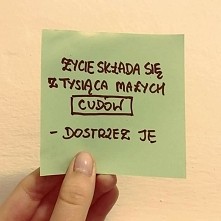 ŻYCIE SKŁADA SIĘ
Z TYSIĄCA MAŁYCH
CUDÓW
- DOSTRZEŻ JE